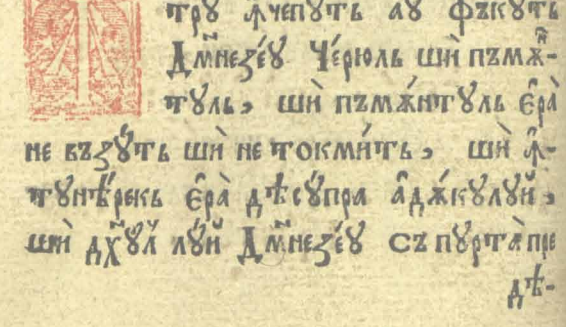 трȣ ꙟчепꙋть аꙋ фъкꙋть
Дм҃незéꙋ Чéрюль шѝ пъмѫ҃-
тꙋль, шѝ пъмѫ́нтꙋль є҆рà
не възꙋ́ть шѝ не токми́ть, шѝ ꙟ҆-
тꙋнѣ́рекь є҆рà дѣсꙋ́пра а҆дѫ́кꙋлꙋй,
шѝ дх҃ꙋл лꙋй Дм҃незéꙋ съ пꙋртà пре
дѣ-